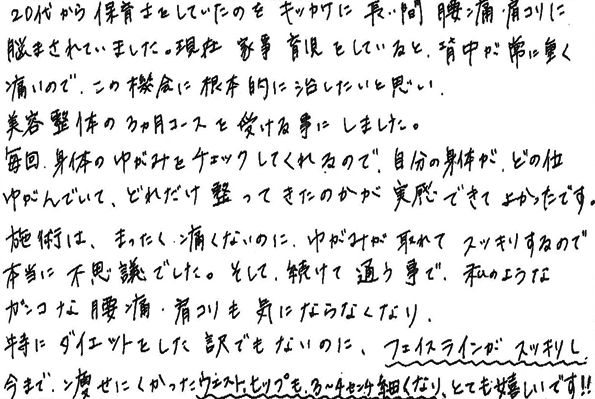 20代から保育士をしていたのをキッカケに長い間腰痛・肩コリに
悩まされていました。現在家事育児をしていると、背中が常に重く
痛いので、この機会に根本的に治したいと思い、
美容整体の3ヵ月コースを受ける事にしました。
毎回、身体のゆがみをチェックしてくれるので、自分の身体が、どの位
ゆがんでいて、どれだけ整ってきたのかが実感できてよかったです。
施術は、まったく痛くないのに、ゆがみが取れてスッキリするので
本当に不思議でした。そして、続けて通う事で、私のような
ガンコな腰痛・肩コリも気にならなくなり、
特にダイエットをした訳でもないのに、フェイスラインがスッキリし、
今まで、痩せにくかったウエスト、ヒップも、3〜4センチ細くなり、とても嬉しいです!!